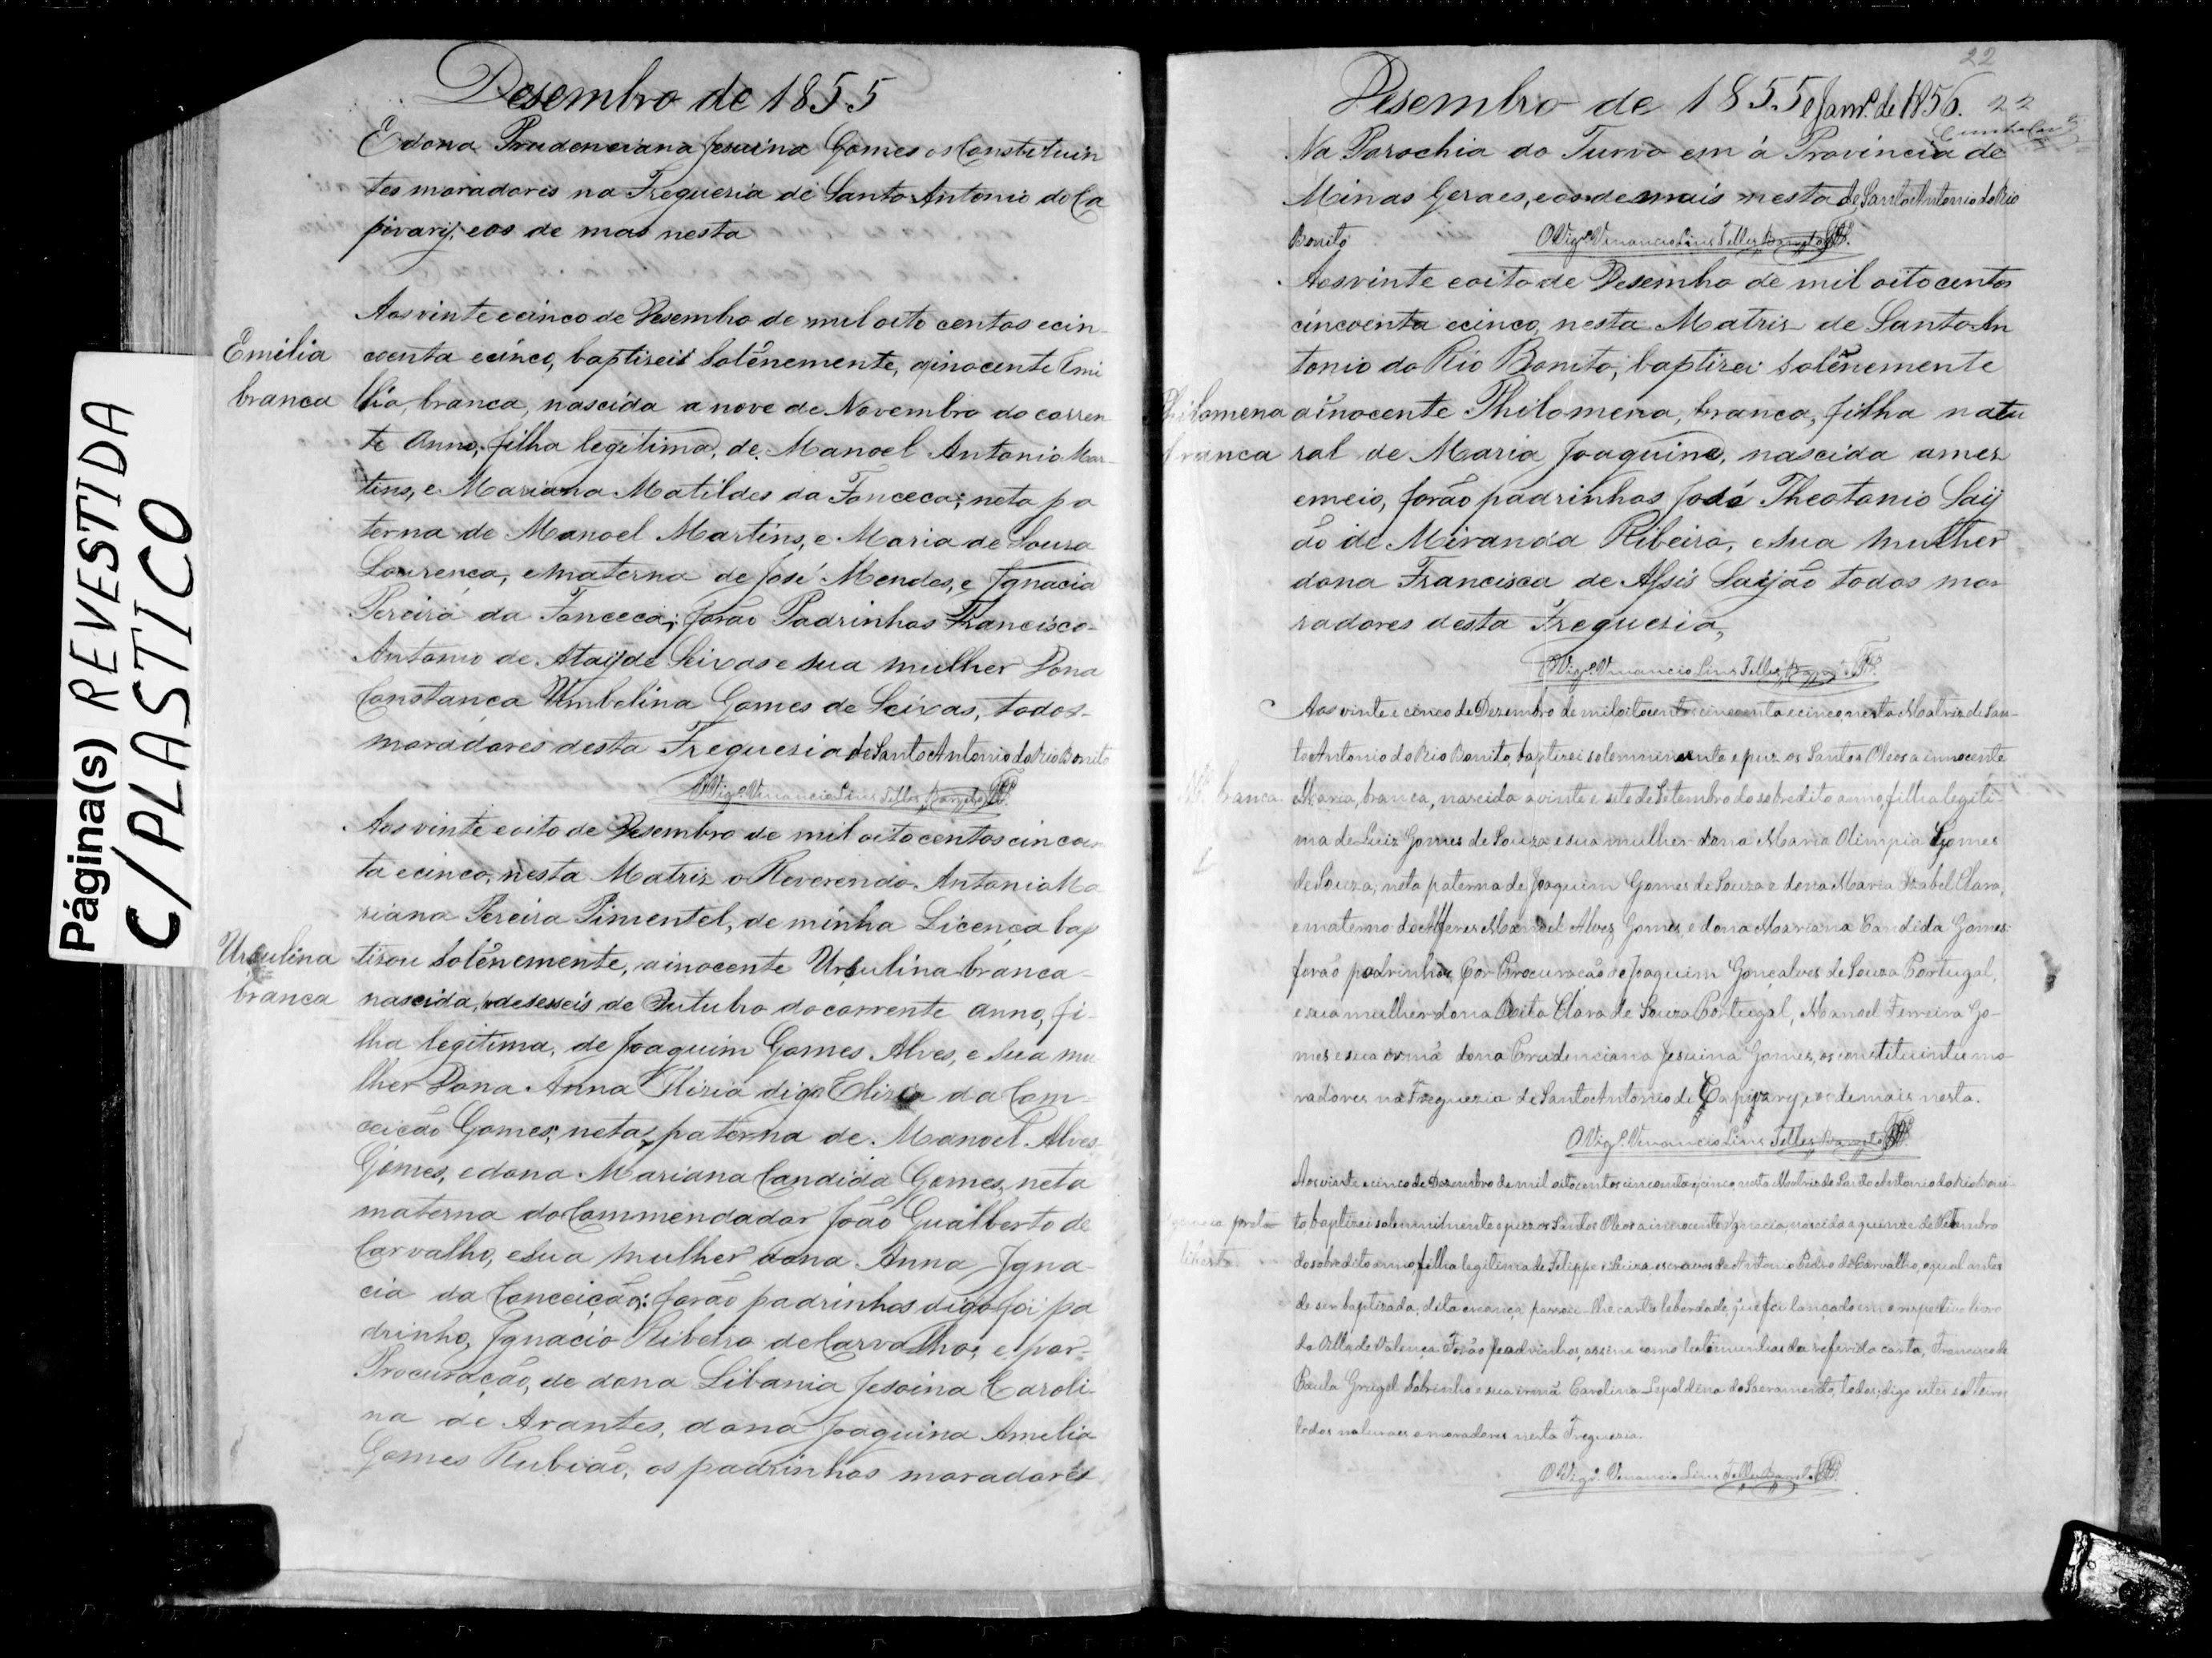 Página(s) REVESTIDA
C/PLASTICO
Desembro de 1855
E dona Prudenciana Jesuina Gomes os Constituin
tes moradores na Fregueria de Santo Antonio do Ca
pivary, eos de mas nesta
Aos vinte e cinco de Desembro de mil oito centos ecin-
Emilia
coenta ecinco, baptisei solẽnemente, a inocente Emi
branca
lia, branca, nascida a nove de Novembro do corren
te Anno, filha legitima, de Manoel Antonio Mar-
tins, e Mariana Matildes da Fonceca; neta pa
terna de Manoel Martins, e Maria de Souza
Lourença, e materna de José Mendes, e Ignacia
Pereira da Fonceca; forão Padrinhos Francisco
Antonio de Atayde Seixas e sua mulher Dona
Constança Umbelina Gomes de Seixas, todos-
moradores desta Freguesia de Santo Antonio do Rio Bonito
O Vigº Venancio Lins Telles Barreto
Aos vinte eoito de Desembro de mil oitocentos cincoen
ta ecinco, nesta Matriz o Reverendo Antonio Ma
riana Pereira Pimentel, de minha Licença bap
Ursulina
tizou solẽnemente, a inocente Ursulina branca-
branca
nascida, adeseseis de Outubro do corrente anno, fi-
lha legitima, de Joaquim Gomes Alves, e sua mu
lher Dona Anna Iliria digo Eliria da Com-
ceicão Gomes; neta, paterna de Manoel Alves
Gomes, e dona Mariana Candida Gomes, neta
materna do Commendador João Gualberto de
Carvalho, e sua mulher dona Anna Igna-
cia da Conceição: forão padrinhos digo foi pa
drinho, Ignacio Ribeiro de Carvalho; e por-
Procuração, de dona Libania Jesoina Caroli-
na de Arantes, dona Joaquina Amelia
Gomes Rubião, os padrinhos moradores
22
Desembro de 1855 e Janrº de 1856. 22
Na Parochia do Turvo em á Provincia de
Minas Geraes, eos demais nesta de Santo Antonio do Rio
Bonito
O Vigº Venancio Lins Telles Barreto
Aos vinte eoito de Desembro de mil oitocentos
cincoenta ecinco, nesta Matriz de Santo An
tonio do Rio Bonito, baptizei solẽnemente
Philomena
a inocente Philomena, branca, filha natu
branca
ral de Maria Joaquina, nascida a mez
emeio, forão padrinhos José Theotonio Saij
ão de Miranda Ribeiro, e sua mulher
dona Francisca de Assis Saijão todos mo-
radores desta Freguesia,
O Vigº Venancio Lins Telles Barreto
Aos vinte e cinco de Dezembro de mil oitocentos cincoenta e cinco nesta Matriz de San-
to Antonio do Rio Bonito, baptizei solemnimente e puz os Santos Oleos a innocente
branca.
Maria, branca, nascida a vinte e sete de Setembro do sobredito anno, filha legiti-
ma de Luiz Gomes de Souza e sua mulher dona Maria Olimpia Gomes
de Souza, neta paterna de Joaquim Gomes de Souza e dona Maria Izabel Clara,
e materna do Alferes Manoel Alves Gomes, e dona Mariana Candida Gomes:
forão padrinhos Por Procuração de Joaquim Gonçalves de Souza Portugal,
e sua mulher dona Rita Clara de Souza Portugal, Manoel Ferreira Go-
mes e sua irmã dona Prudenciana Jesuina Gomes, os constituintes mo-
radores na Freguezia de Santo Antonio de Capivary, e os demais nesta.
O Vigº Venancio Lins Telles Barreto
Aos vinte e cinco de Dezembro de mil oitocentos cincoenta e cinco nesta Matriz de Santo Antonio do Rio Boni-
Ignacia preta
to, baptizei solemnimente e puz os Santos Oleos a innocente Ignacia, nascida a quinze de Setembro
liberta
do sobredito anno, filha legitima de Felippe e Luiza, escravos de Antonio Pedro de Carvalho, o qual antes
de ser baptizada, dita creança passou-lhe carta liberdade, que foi lançada em o respectivo livro
da Villa de Valença Forão padrinhos, assim como testimunhas da referida carta, Francisco de
Paula Gruzel Sobrinho e sua irmã Carolina Lepoldina do Sacramento, todos, digo estes solteiros
todos naturaes e moradores nesta Freguezia.
O Vigº Venancio Lins Telles Barreto